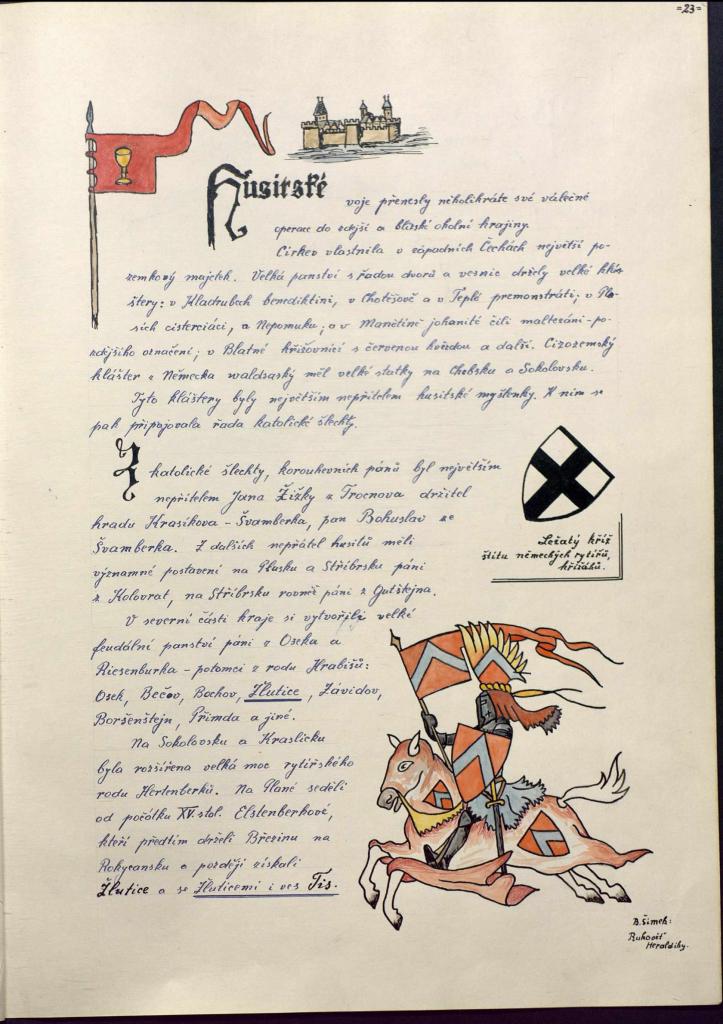 =23=
Husitské voje přenesly několikráte své válečné
operace do zdejší a blízké okolní krajiny.
Církev vlastnila v západních Čechách největší po-
zemkový majetek. Velká panství s řadou dvorů a vesnic držely velké klá-
štery: v Kladrubech benediktini, v Chotěšově a v Teplé premonstráti, v Pla-
sích cisterciáci, a Nepomuku; a v Manětíně johanité čili maltezáni-po-
zdějšího označení; v Blatné křižovníci s červenou hvězdou a další. Cizozemský
klášter z Německa waldsaský měl velké statky na Chebsku a Sokolovsku.
Tyto kláštery byly největším nepřítelem husitské myšlenky. K nim se
pak připojovala řada katolické šlechty.
Z katolické šlechty, korouhevních pánů byl největším
nepřítelem Jana Žižky z Trocnova držitel
hradu Krasíkova - Švamberka, pan Bohuslav ze
Švamberka. Z dalších nepřátel husitů měli
významné postavení na Plzsku a Stříbrsku páni
z Kolovrat, na Stříbrsku rovněž páni z Gutštejna.
Ležatý kříž
štítu německých rytířů,
křižáků.
V severní části kraje si vytvořili velké
feudální panství páni z Oseka a
Riesenburka - potomci z rodu Hrabišů:
Osek, Bečov, Bochov, Žlutice, Závidov,
Boršenštejn, Přimda a jiné.
Na Sokolovsku a Kraslicku
byla rozšířena velká moc rytířského
rodu Hertenberků. Na Plané seděli
od počátku XV. stol. Elstenberkové,
kteří předtím drželi Březinu na
Rokycansku a později získali
Žlutice a se Žluticemi i ves Tis.
B. Šimek:
Rukověť
Heraldiky.